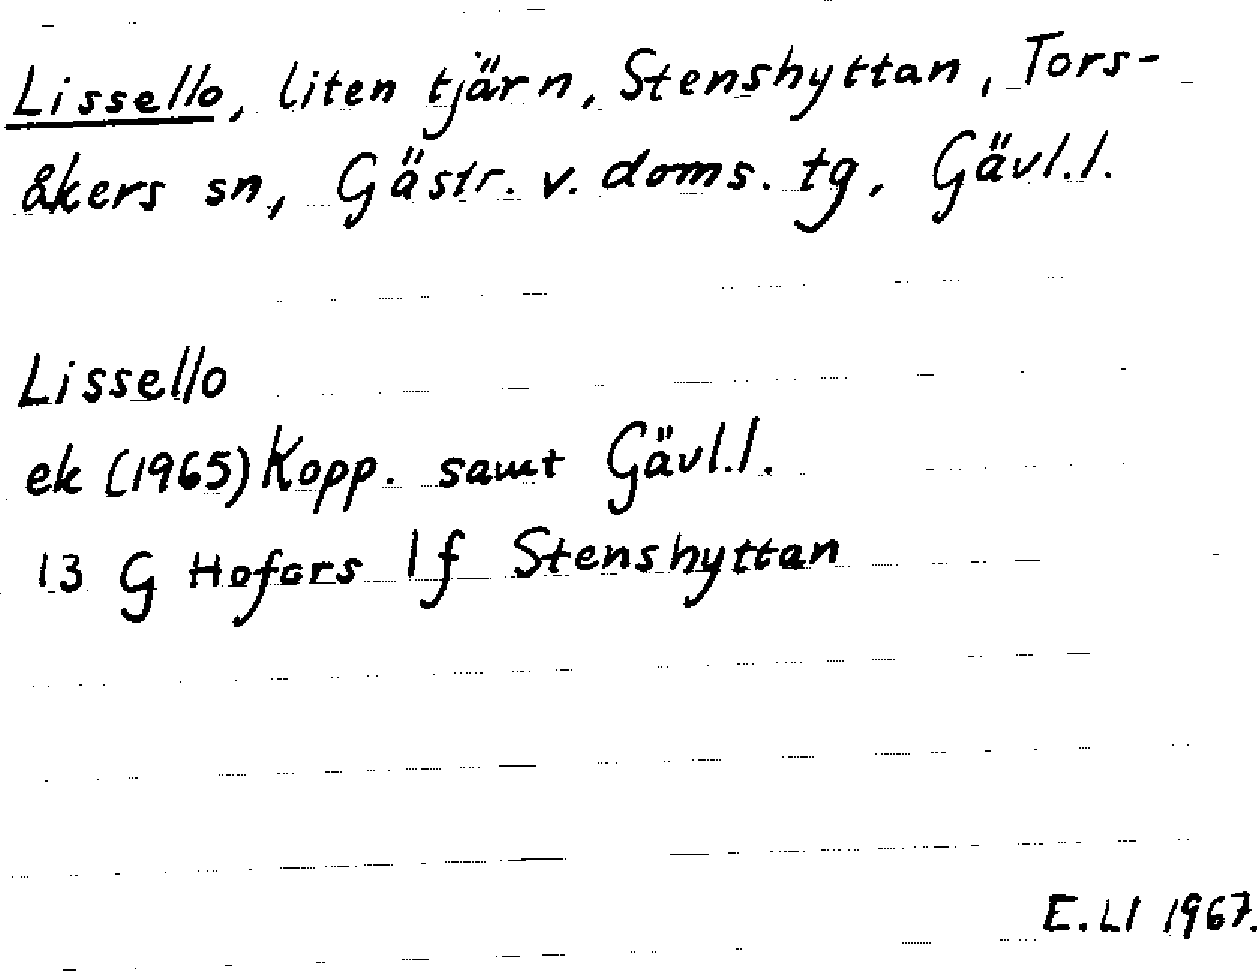 Lissello, liten tjärn, Stenshyttan, Tors-
åkers sn, Gästr. v. doms. tg, Gävl.l.
Lissello
ek (1965) Kopp. samt Gävl.l.
13 G Hofors 1f Stenshyttan
E. Ll 1967.